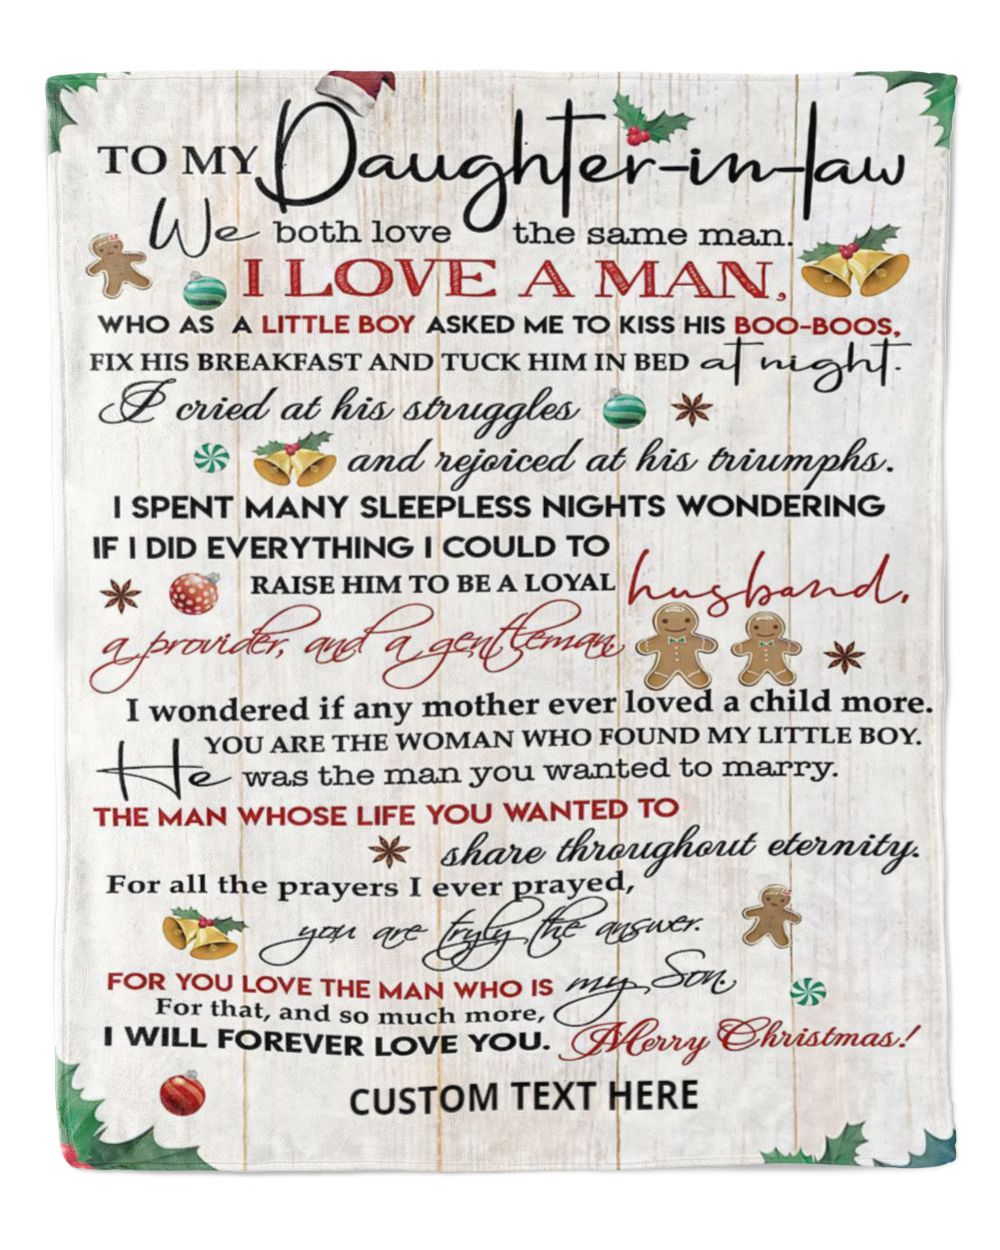 TO MY Daughter-in-law
We both love the same man.
I LOVE A MAN,
WHO AS A LITTLE BOY ASKED ME TO KISS HIS BOO-BOOS,
FIX HIS BREAKFAST AND TUCK HIM IN BED at night.
I cried at his struggles
and rejoiced at his triumphs.
I SPENT MANY SLEEPLESS NIGHTS WONDERING
IF I DID EVERYTHING I COULD TO
RAISE HIM TO BE A LOYAL husband,
a provider, and a gentleman,
I wondered if any mother ever loved a child more.
YOU ARE THE WOMAN WHO FOUND MY LITTLE BOY.
He was the man you wanted to marry.
THE MAN WHOSE LIFE YOU WANTED TO
share throughout eternity.
For all the prayers I ever prayed,
you are tryly the answer.
FOR YOU LOVE THE MAN WHO IS my Son.
For that, and so much more,
I WILL FOREVER LOVE YOU. Merry Christmas!
CUSTOM TEXT HERE